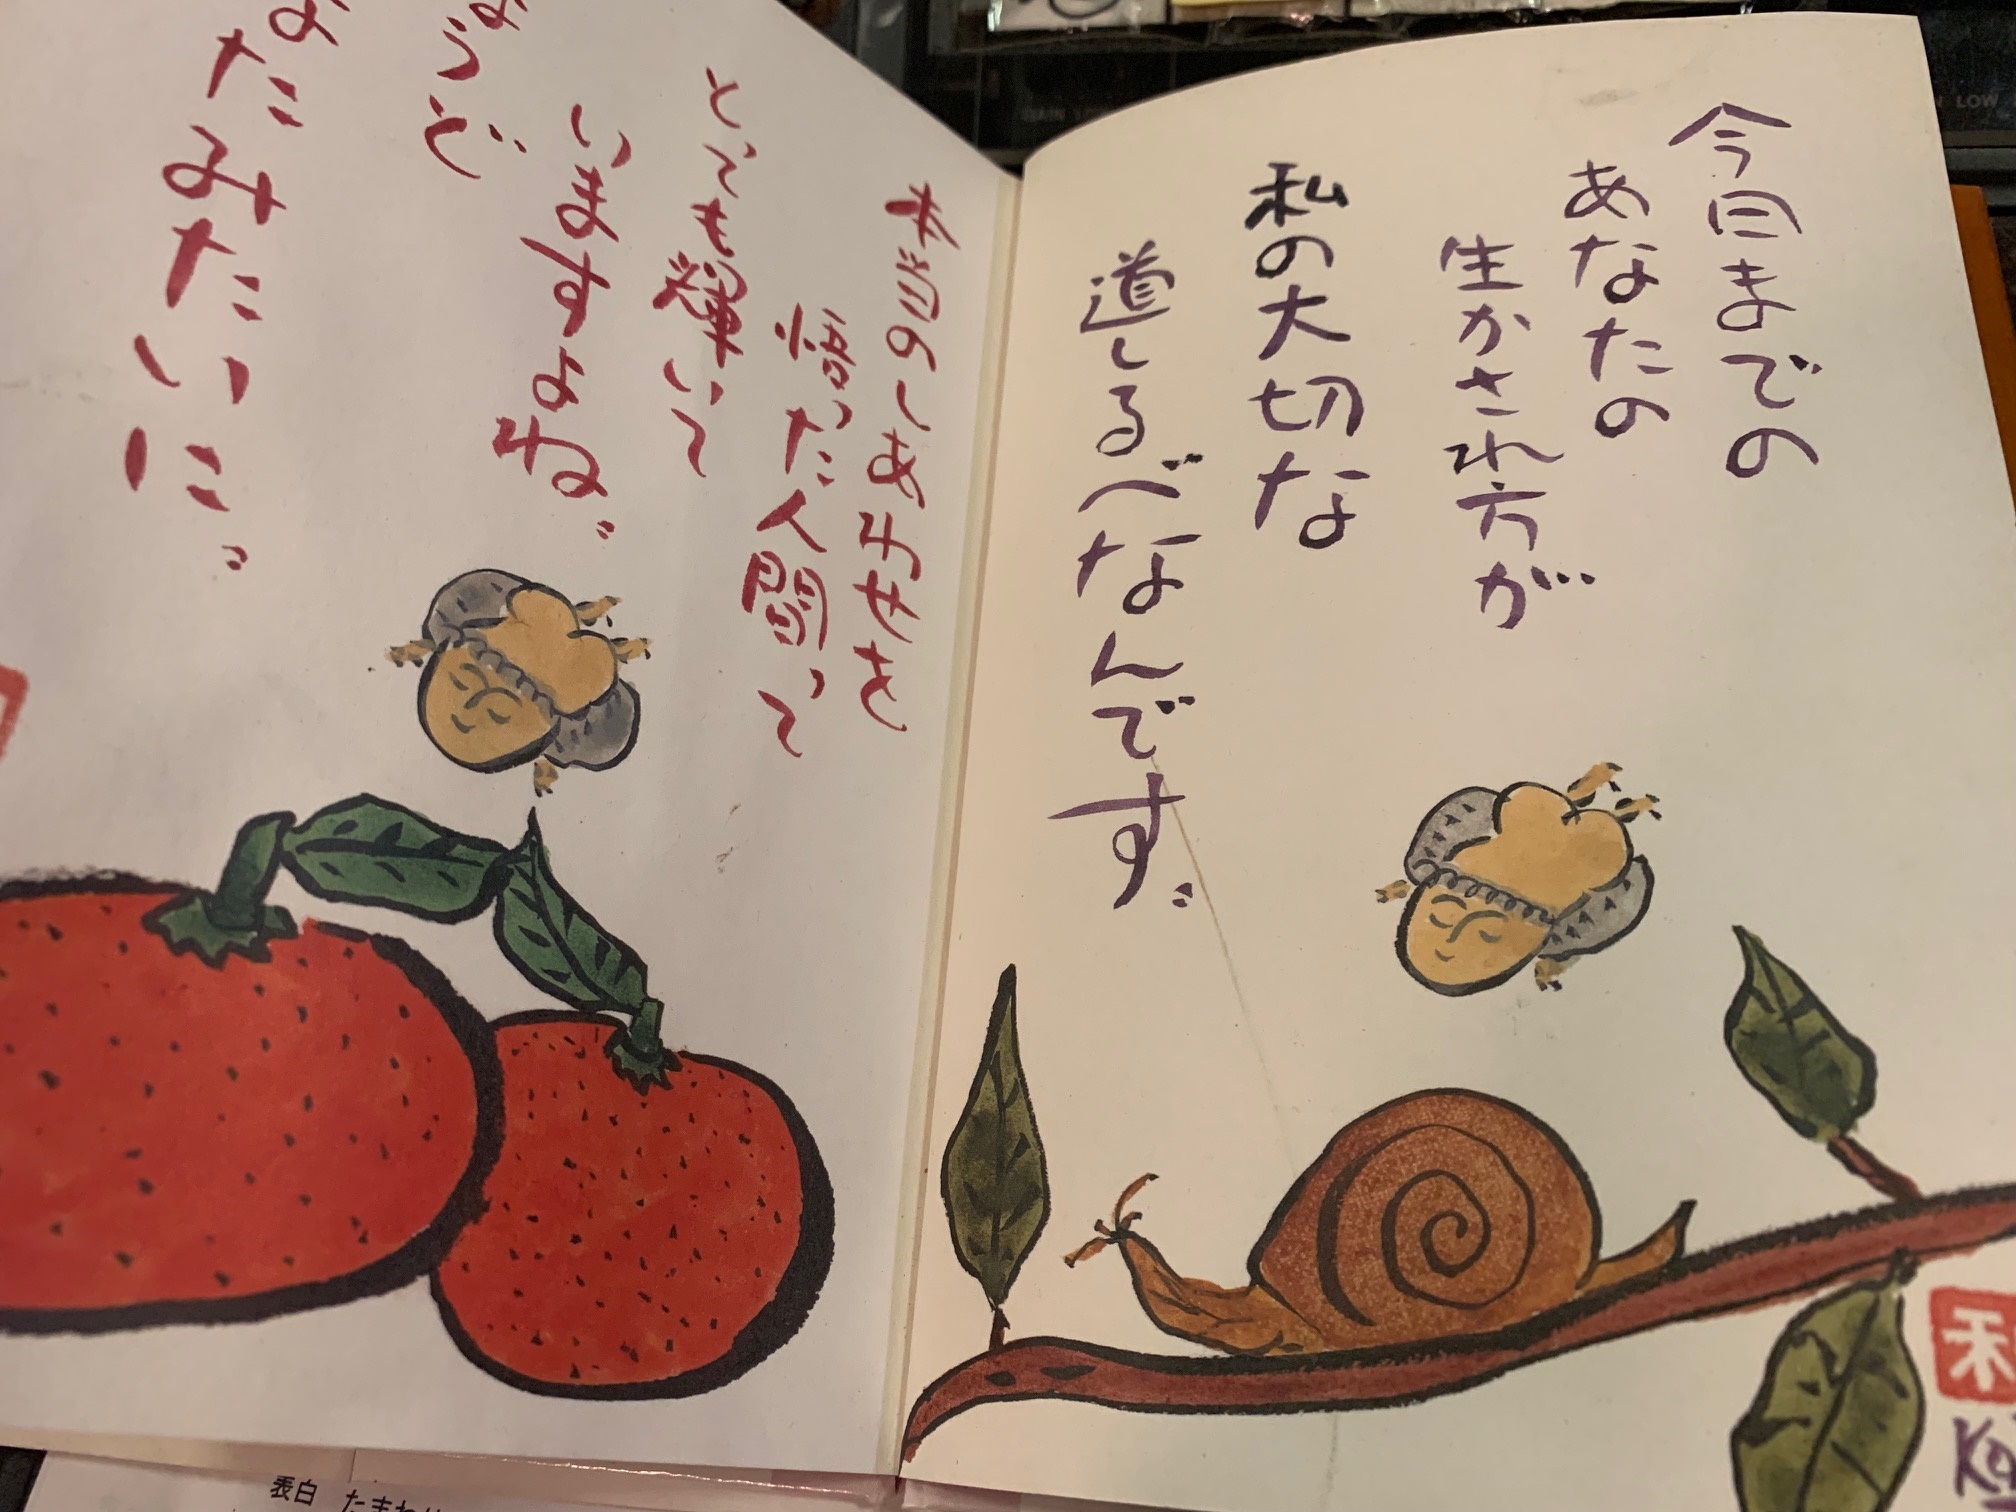 今日までの
あなたの
生かされ方が
私の大切な
道しるべなんです。
本当のしあわせを
語った人間って
とっても輝いて
いますよね。
ようど
なたみたいに。
表白
LOW
GAIN